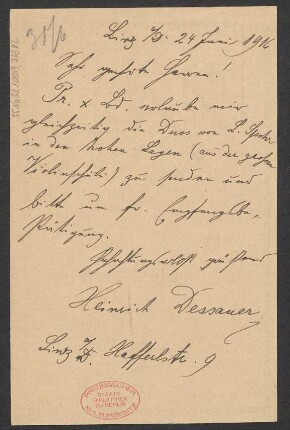 31/6
Linz a/D. 24 Juni 1916
Sehr geehrte Herren!
Pr. x Bd. erlaube mir
gleichzeitig die Duos von L. Spohr
in den hohen Lagen (aus der großen
Violinschule) zu senden und
bitte um fr. Empfangsbe-
stätigung.
Hochachtungsvollst grüßend
Heinrich Dessauer
Linz a/D. Hafferlstr. 9
PREUSSISCHER
STAATS-
BIBLIOTHEK
ZU BERLIN